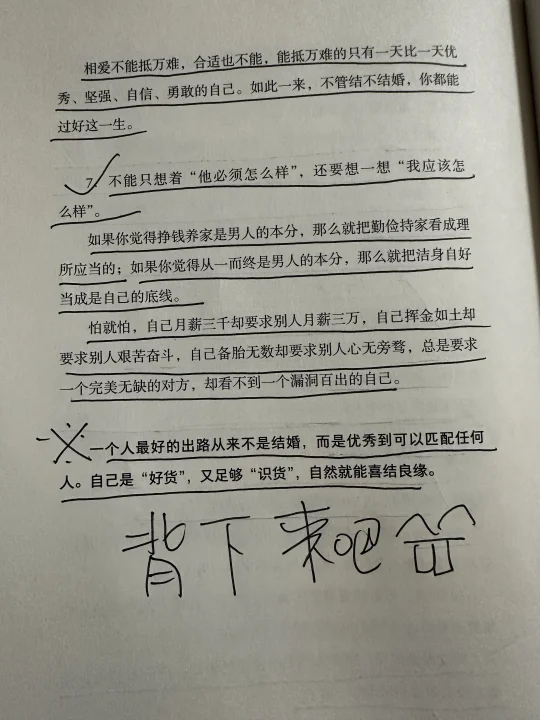 相爱不能抵万难，合适也不能，能抵万难的只有一天比一天优
秀、坚强、自信、勇敢的自己。如此一来，不管结不结婚，你都能
过好这一生。
7. 不能只想着“他必须怎么样”，还要想一想“我应该怎
么样”。
如果你觉得挣钱养家是男人的本分，那么就把勤俭持家看成理
所应当的；如果你觉得从一而终是男人的本分，那么就把洁身自好
当成是自己的底线。
怕就怕，自己月薪三千却要求别人月薪三万，自己挥金如土却
要求别人艰苦奋斗，自己备胎无数却要求别人心无旁骛，总是要求
一个完美无缺的对方，却看不到一个漏洞百出的自己。
一个人最好的出路从来不是结婚，而是优秀到可以匹配任何
人。自己是“好货”，又足够“识货”，自然就能喜结良缘。
背下来吧